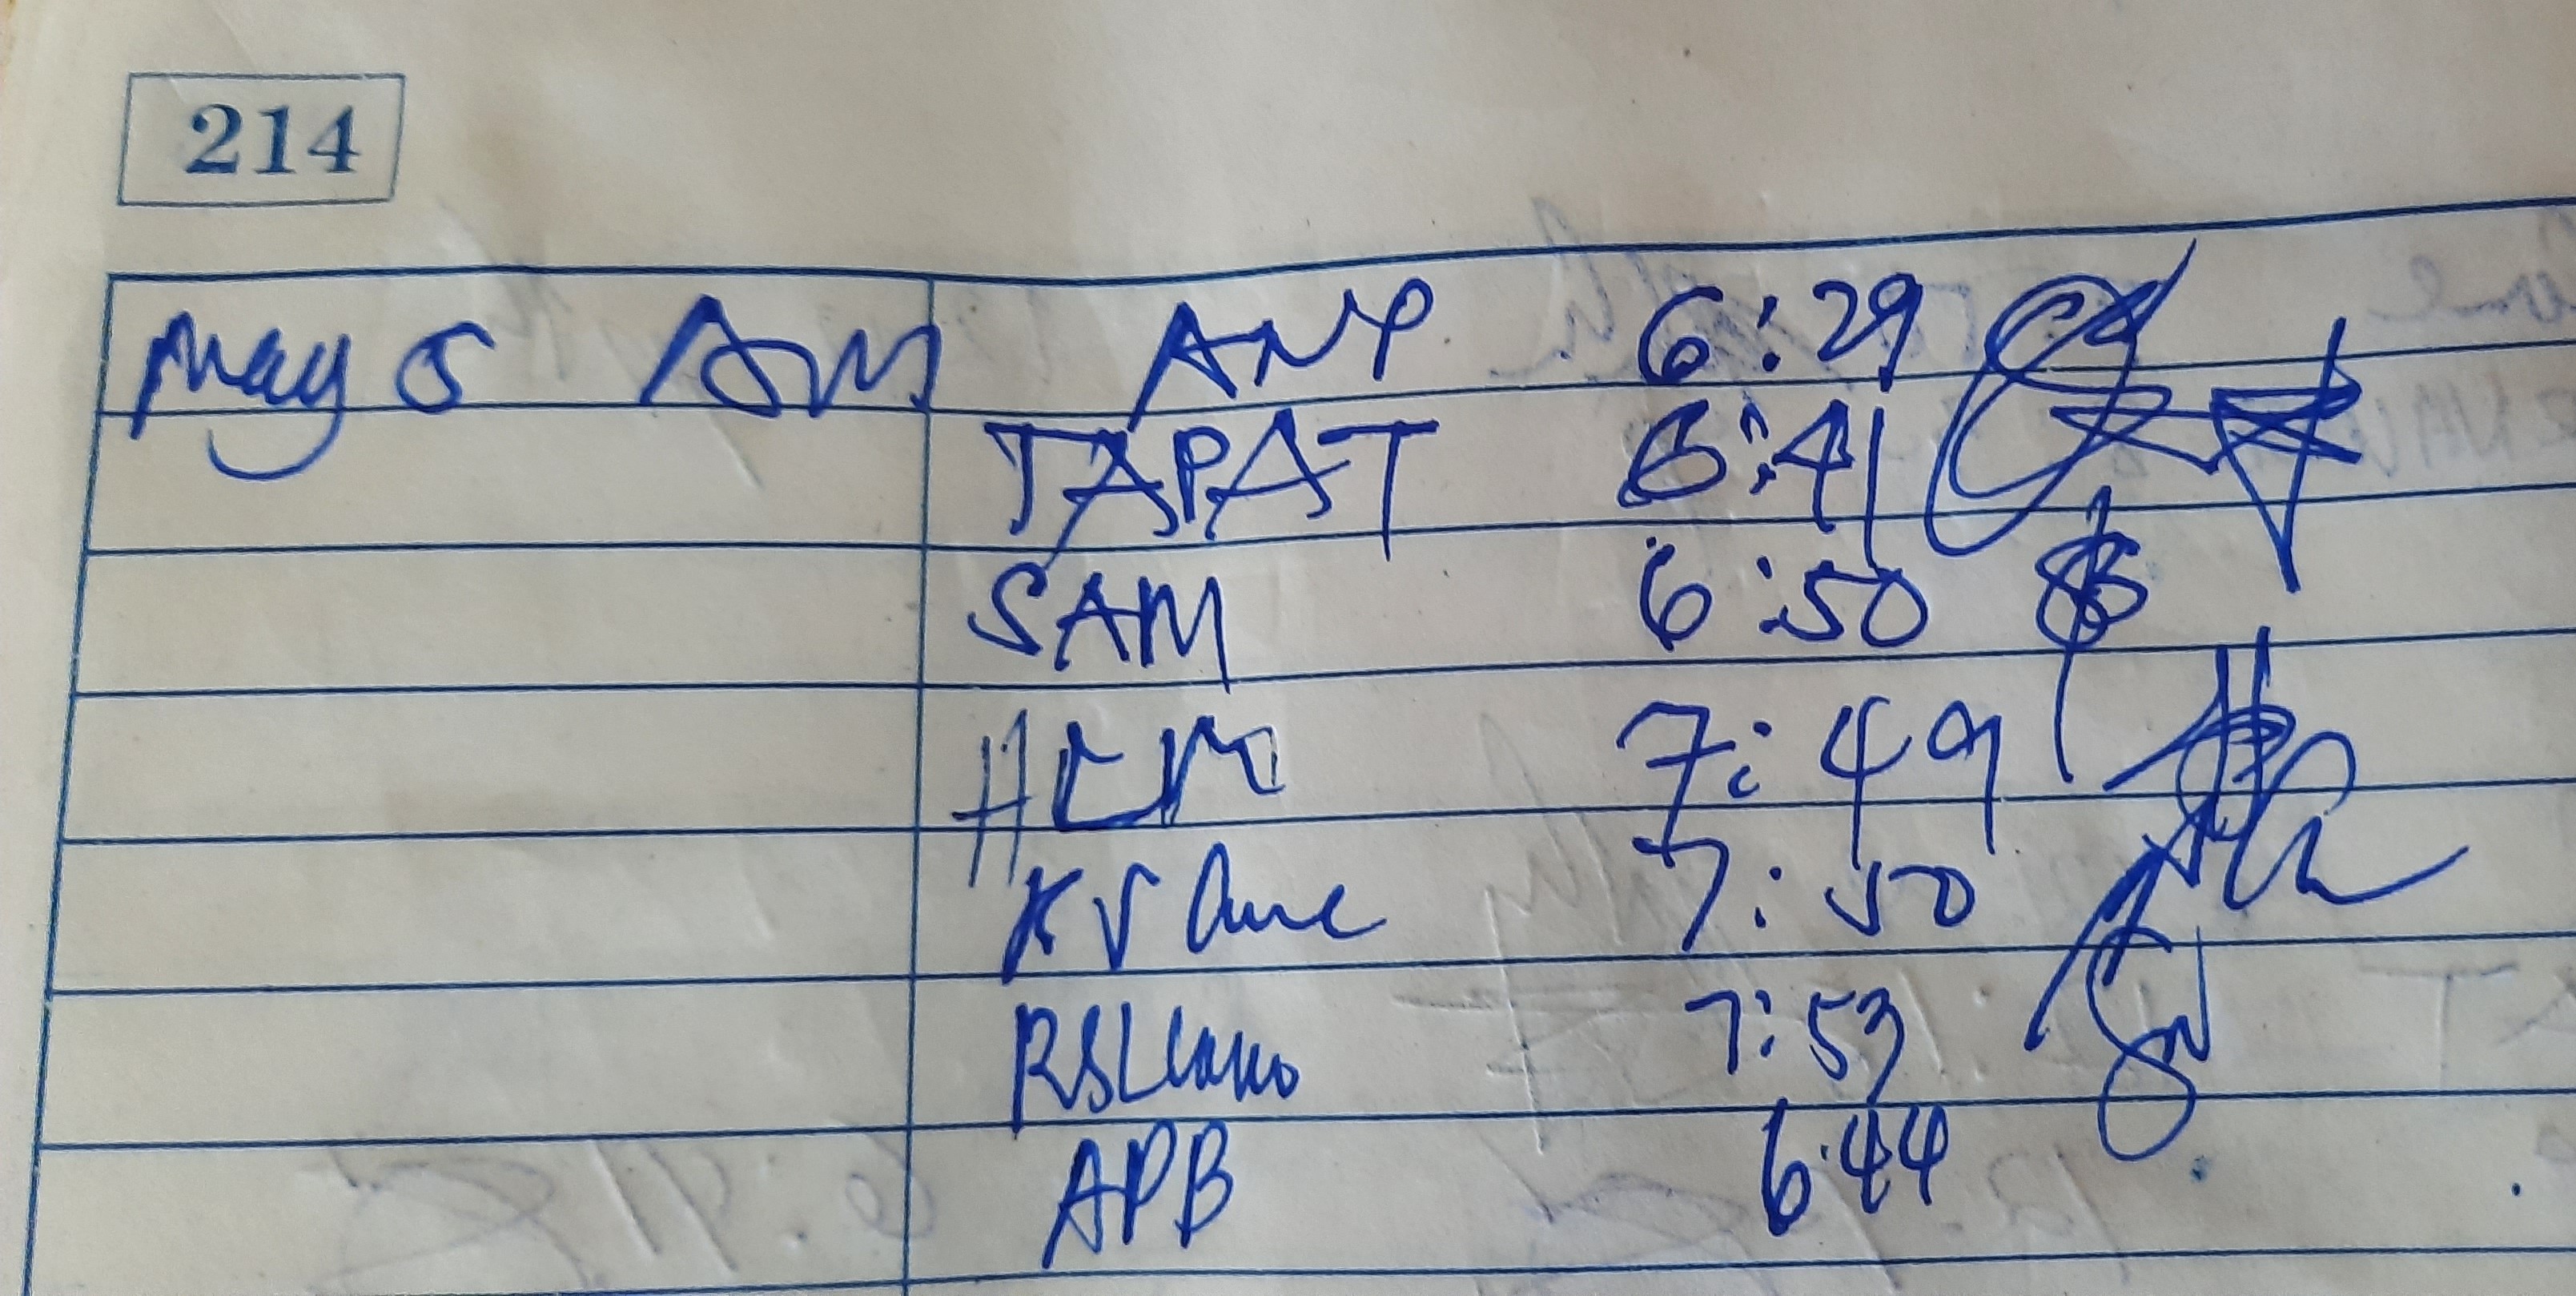 214
May 5 AM ANP 6:29
TAPAT 6:41
SAM 6:50
7:49
KV 7:50
RSLlano 7:53
APB 6:44